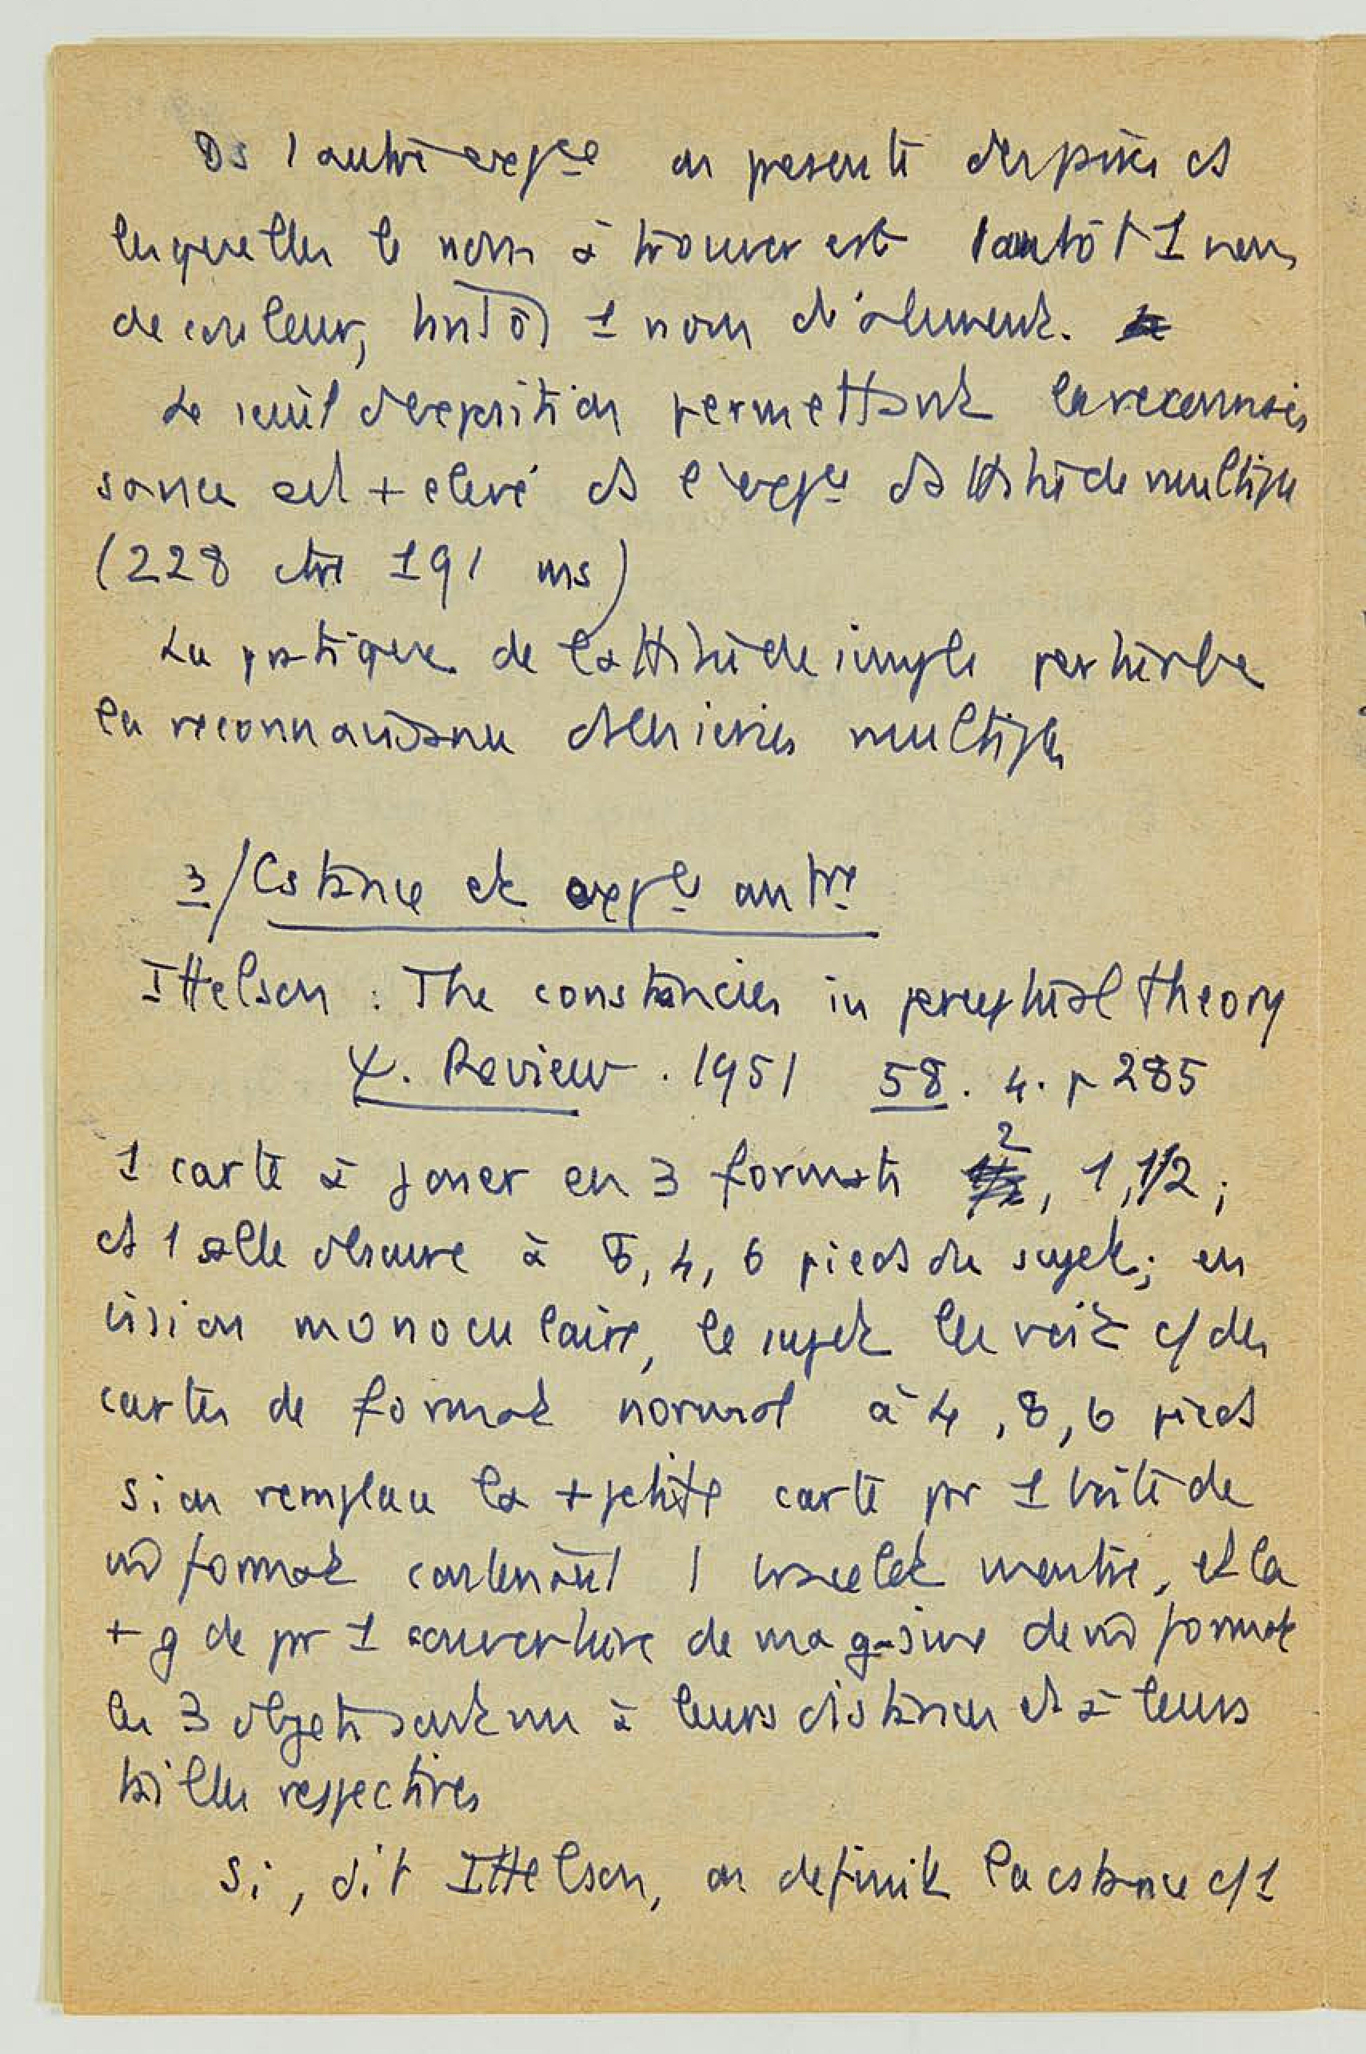 Ds l'autre expce on présente des séries ds
lesquelles le nom à trouver est tantôt 1 nom
de couleur, tantôt 1 nom d'aliment.
Le seuil d'exposition permettant la reconnais
sance est + élevé ds l'expce d'attitude multiple
(228 ctre 191 ms)
La pratique de l'attitude simple perturbe
la reconnaissance ds les séries multiples
3/ Cstance et expce antre
Ittelson : The constancies in perceptual theory
Ψ. Review. 1951 58. 4. p 285
1 carte à jouer en 3 formats 2, 1, 1/2 ;
ds 1 salle obscure à 8, 4, 6 pieds du sujet ; en
vision monoculaire, le sujet les voit c/ des
cartes de format normal à 4, 8, 6 pieds
si on remplace la + petite carte pr 1 boîte de
m̂ format contenant 1 montre, et la
+ gde pr 1 couverture de magasine de m̂ format
les 3 objets sont vu à leurs distances et à leurs
tailles respectives
Si, dit Ittelson, on définit la cstance c/ 1